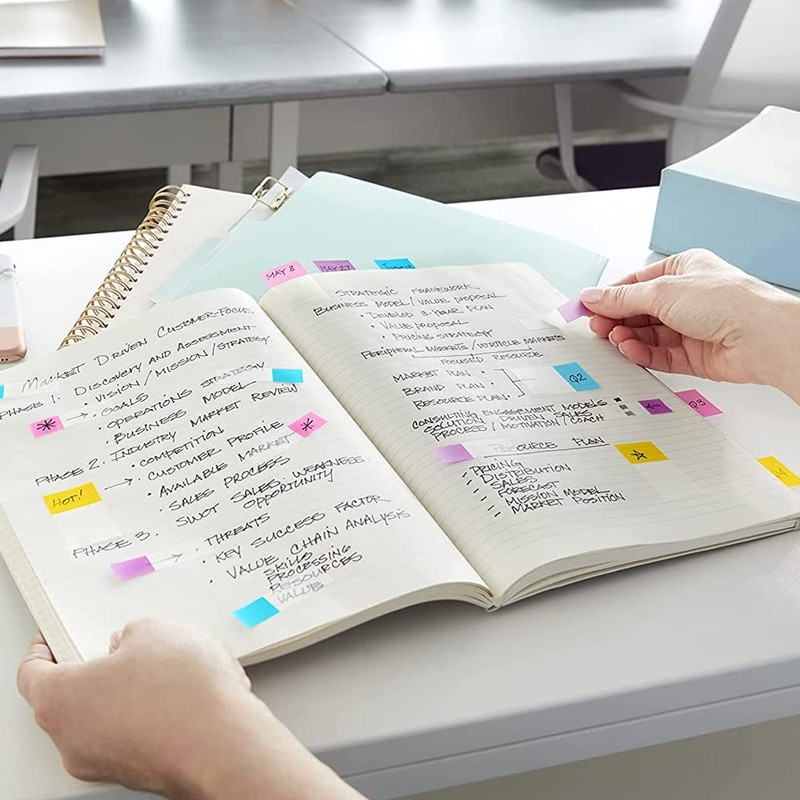 MARKET DRIVEN CUSTOMER-FOCUS
PHASE 1. DISCOVERY AND ASSESSMENT
• VISION/MISSION/STRATEGY
* → • GOALS
• OPERATIONS STRATEGY
• BUSINESS MODEL
• INDUSTRY MARKET REVIEW
PHASE 2. • COMPETITION
• CUSTOMER PROFILE *
HOT! → • AVAILABLE MARKET
• SALES PROCESS
• SWOT SALES WEAKNESS
OPPORTUNITY
PHASE 3. • THREATS
• KEY SUCCESS FACTOR
• VALUE CHAIN ANALYSIS
SKILLS
PROCESSING
RESOURCES
VALUE
MAY 8
MAY 27
STRATEGIC FRAMEWORK
BUSINESS MODEL/VALUE PROPOSAL
• DEVELOP 3-YEAR PLAN
• VALUE PROPOSAL
• PRICING STRATEGY
PERIPHERAL MARKETS/VERTICLE MARKETS
FOCUSED RESOURCE
MARKET PLAN •
BRAND PLAN • Q2
RESOURCE PLAN •
CONSULTING ENGAGEMENT MODELS
SOLUTION DRIVEN SALES ← Q3
PROCESS/MOTIVATION/COACH
RESOURCE PLAN
✓ PRICING
✓ DISTRIBUTION
✓ SALES
✓ FORECAST
✓ MISSION MODEL
✓ MARKET POSITION